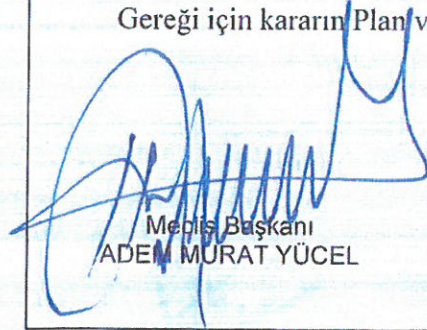 Gereği için kararın Plan v
Meclis Başkanı
ADEM MURAT YÜCEL